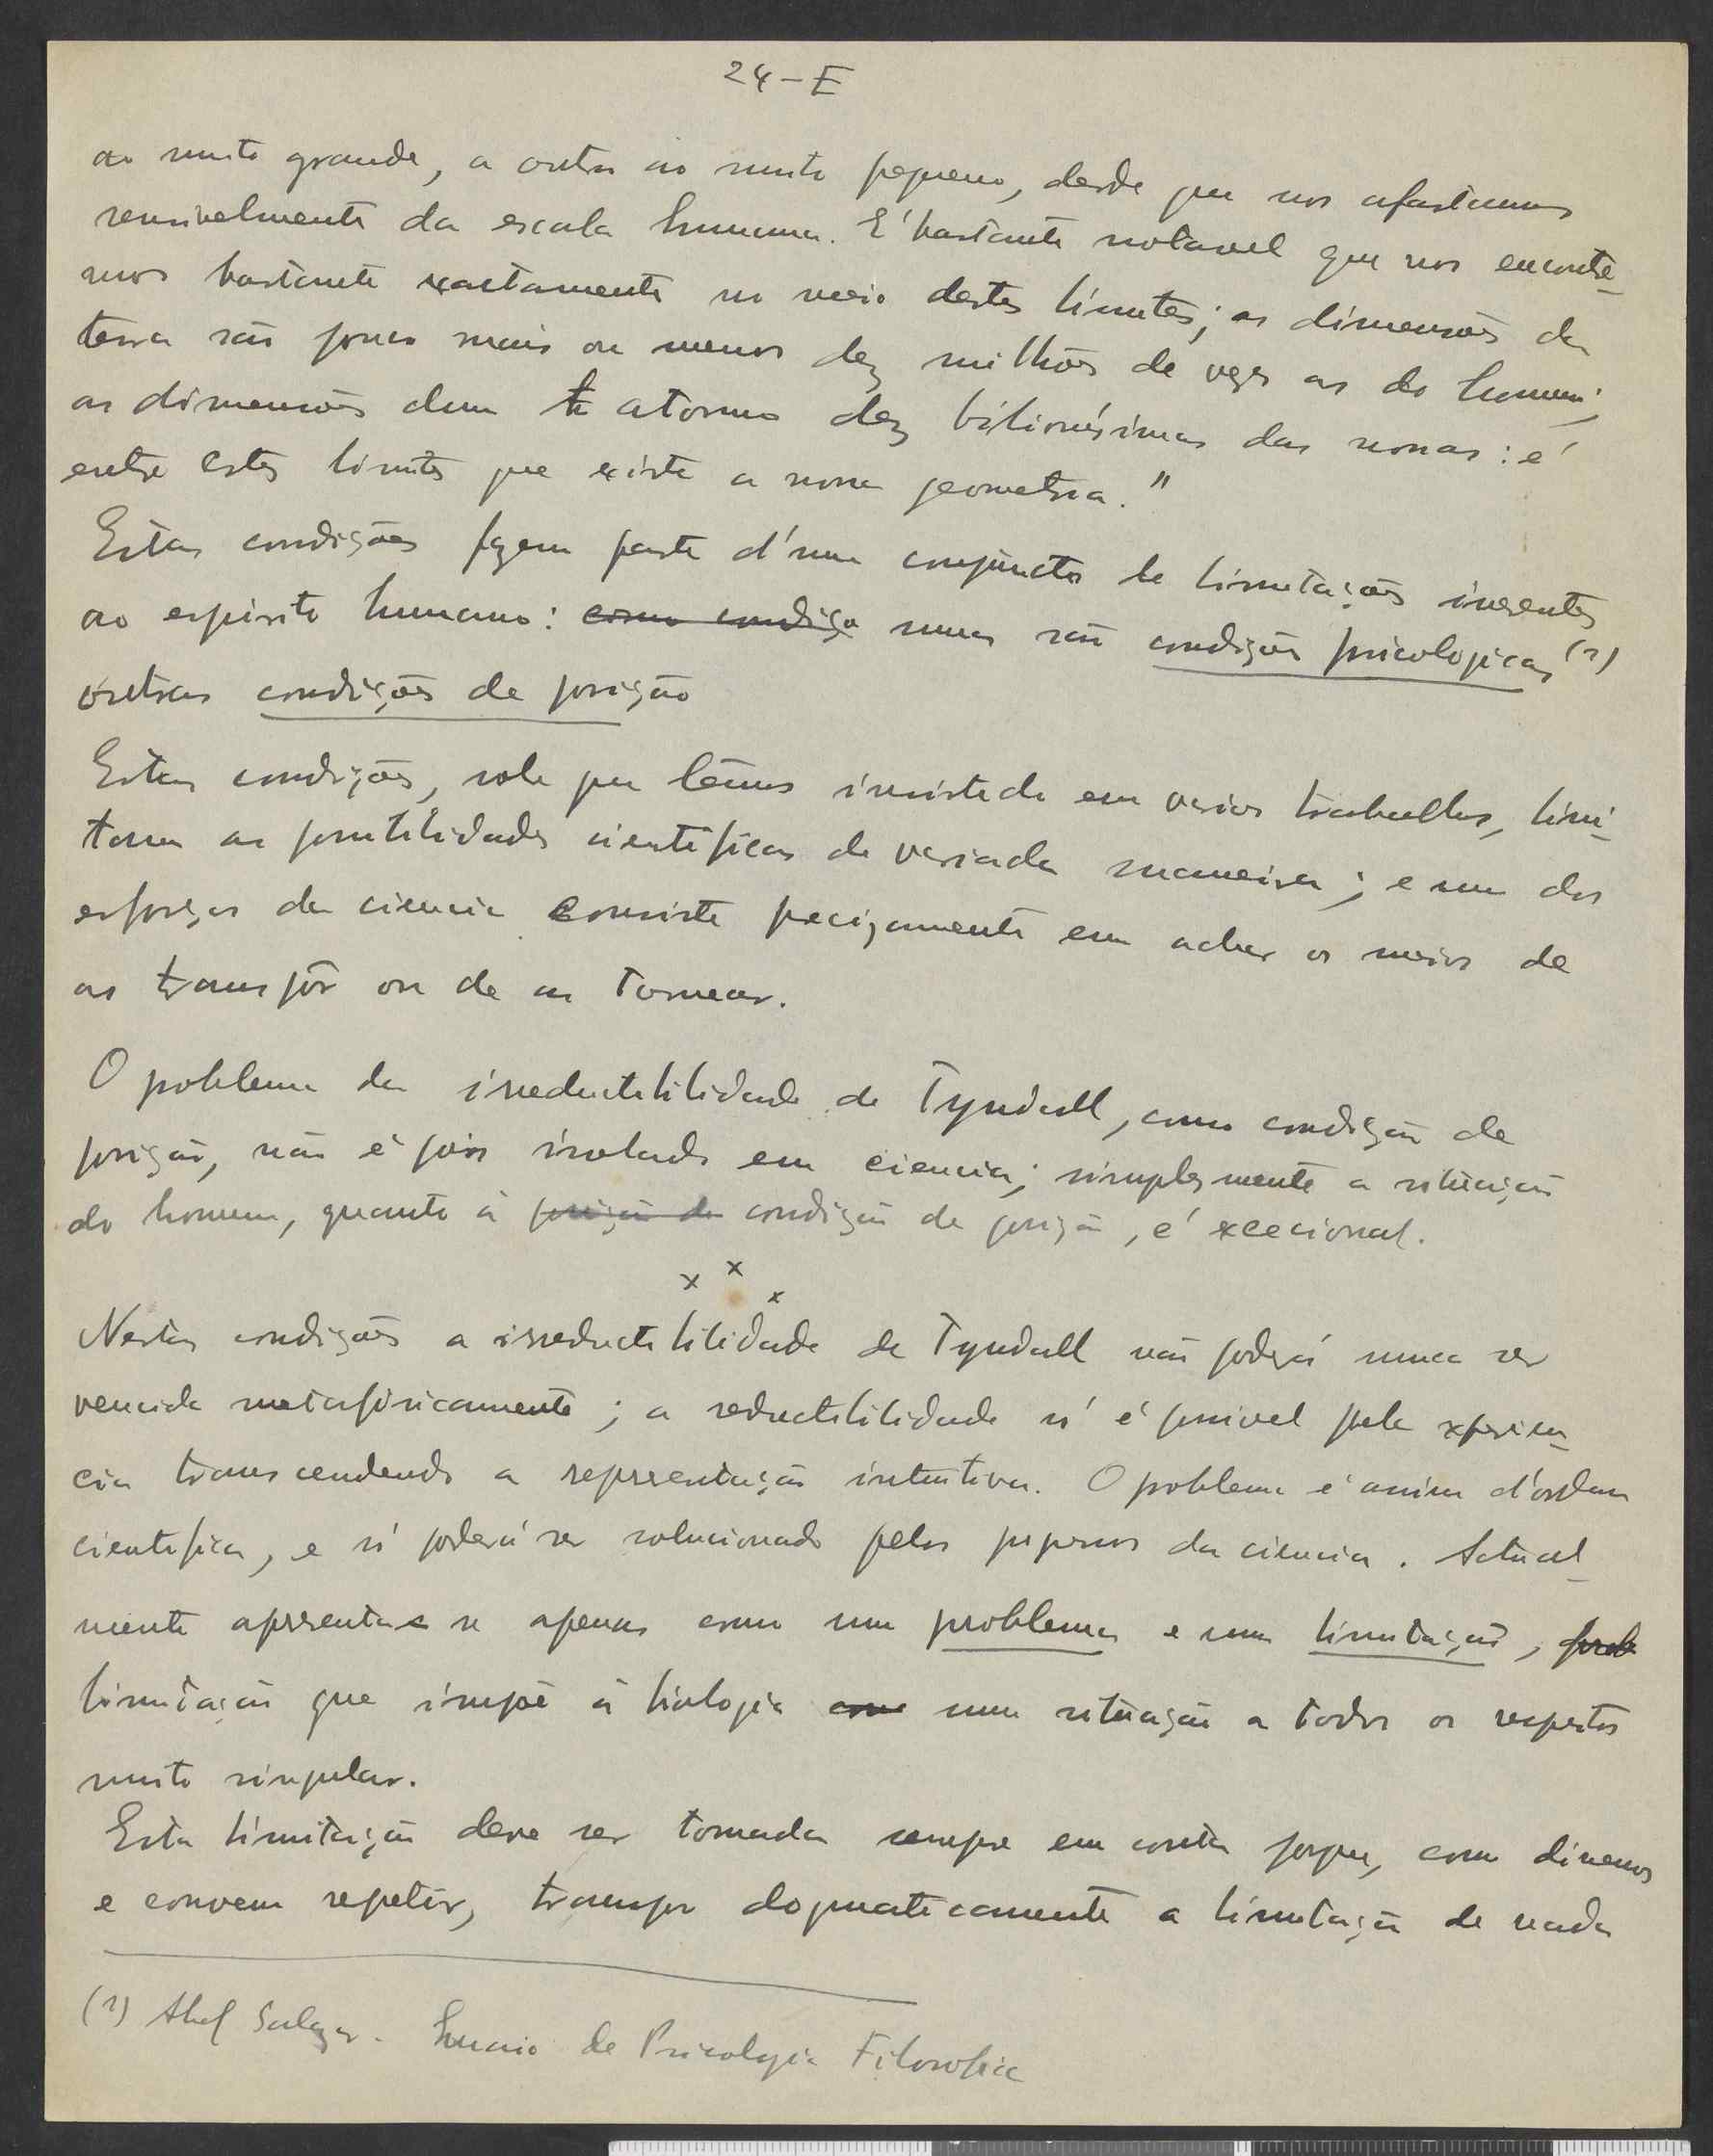 24 – E
ao muito grande, a outra ao muito pequeno, desde que nos afastamos
sensivelmente da escala humana. E' bastante notavel que nos encontre-
mos bastante exactamente no meio destes limites; as dimensões da
terra são pouco mais ou menos dez milhões de vezes as do homem;
as dimensões dum atomo dez bilionésimas das nossas: é
entre estes limites que existe a nossa geometria."
Estas condições fazem parte d'um conjuncto de limitações inerentes
ao espirito humano: como condiço umas são condições psicologicas (1)
outras condições de posição
Estas condições, sobre que temos insistido em varios trabalhos, limi-
tam as possibilidades cientificas de variada maneira; e um dos
esforços da ciencia consiste precizamente em achar os meios de
as transpôr ou de as tornear.
O problema da irreductibilidade de Tyndall, como condição de
posição, não é pois isolado em ciencia; simplesmente a situação
do homem, quanto à posição de condição de posição, é excecional.
x x x
Nestas condições a irreductibilidade de Tyndall não poderá nunca ser
vencida metafisicamente; a reductibilidade só é possivel pela experien-
cia transcendendo a representação intuitiva. O problema é assim d'ordem
cientifica, e só poderá ser solucionado pelos progressos da ciencia. Actual-
mente apresenta se apenas como um problema e uma limitação, prob
limitação que impõe à biologia como uma situação a todos os respeitos
muito singular.
Esta limitação deve ser tomada sempre em conta porque, como dissemos
e convem repetir, transpor dogmaticamente a limitação de nada
(1) Abel Salazar. Ensaio de Psicologia Filosofica